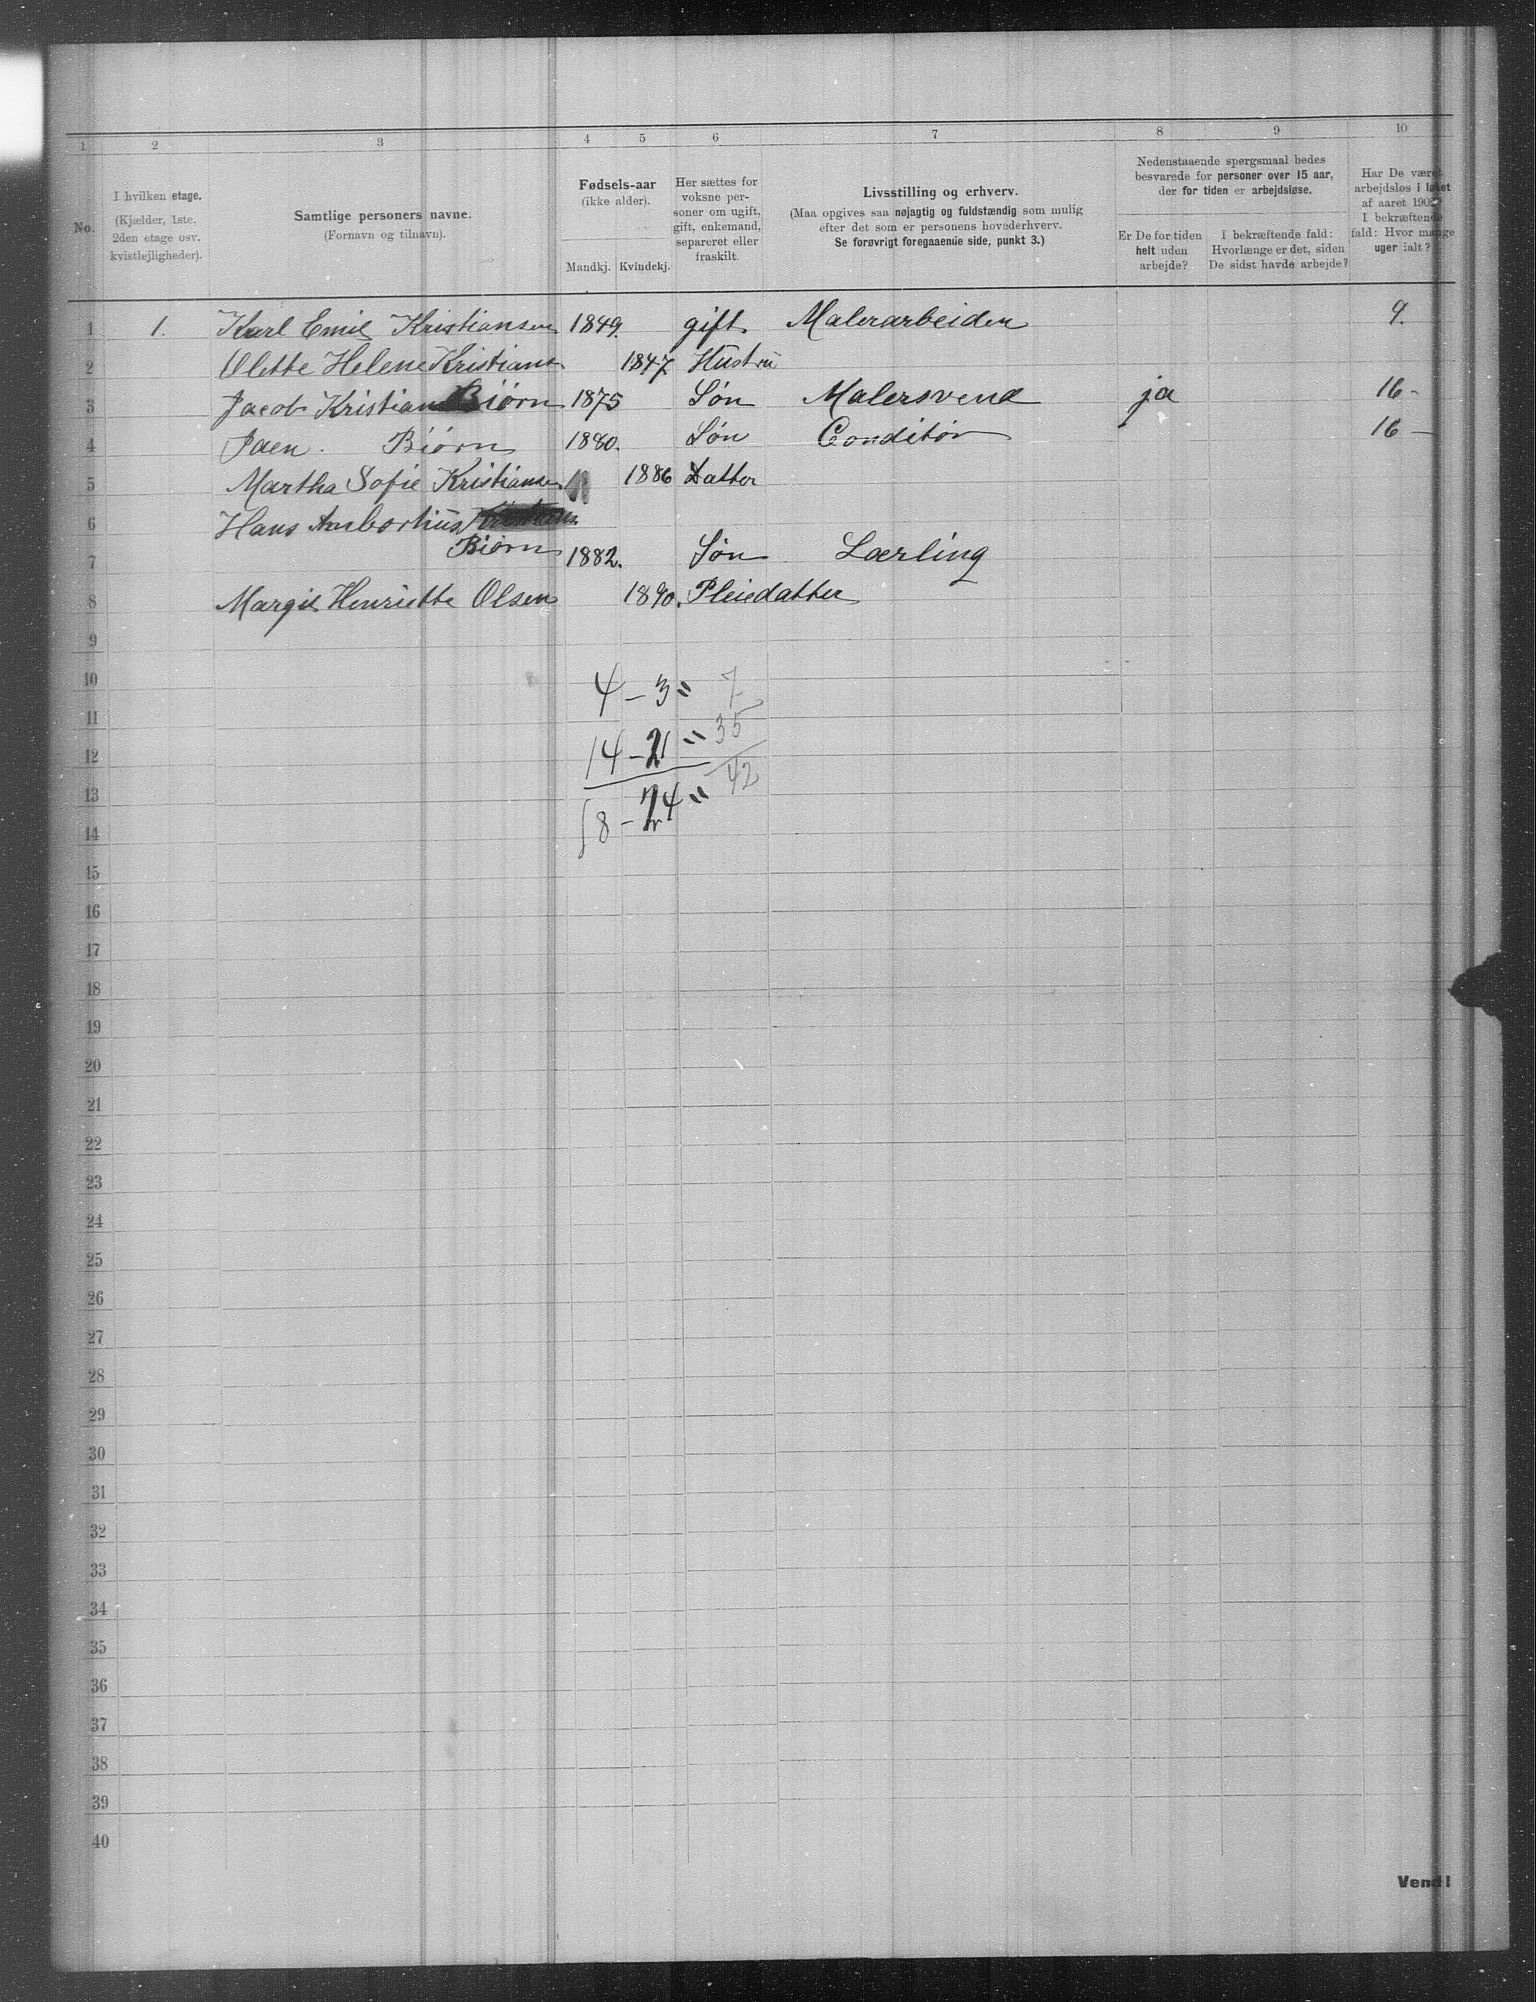 1 2 3 4 5 6 7 8 9 10
No.
I hvilken etage.
(Kjælder, 1ste.
2den etage osv.
kvistlejligheder).
Samtlige personers navne.
(Fornavn og tilnavn).
Fødsels-aar
(ikke alder).
Mandkj. Kvindekj.
Her sættes for
voksne per-
soner om ugift,
gift, enkemand,
separeret eller
fraskilt.
Livsstilling og erhverv.
(Maa opgives saa nøjagtig og fuldstændig som mulig
efter det som er personens hovederhverv.
Se forøvrigt foregaaende side, punkt 3.)
Nedenstaaende spørgsmaal bedes
besvarede for personer over 15 aar,
der for tiden er arbejdsløse.
Er De for tiden
helt uden
arbejde?
I bekræftende fald:
Hvorlænge er det, siden
De sidst havde arbejde?
Har De været
arbejdsløs i løbet
af aaret 190
I bekræftende
fald: Hvor mange
uger ialt?
1 1. Karl Emil Kristiansen 1849. gift. Malerarbeider 9.
2 Olette Helene Kristians 1847 Hustru
3 Jacob Kristian Biörn 1875 Søn Malersvend ja 16 -
4 Biörn 1880. Søn Conditör 16 -
5 Martha Sofie Kristiansen 1886 Datter
6 Hans
7 Biörn 1882. Søn Lærling
8 Margit Henriette Olsen 1890. Pleiedatter
9
10 4 - 3 = 7
11
12 14 - 21 = 35
13 18 - 24 = 42
14
15
16
17
18
19
20
21
22
23
24
25
26
27
28
29
30
31
32
33
34
35
36
37
38
39
40
Vend!